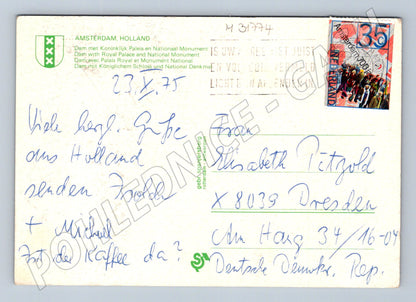 AMSTERDAM, HOLLAND
Dam met Koninklijk Paleis en Nationaal Monument
Dam with Royal Palace and National Monument
Dam avec Palais Royal et Monument National
Dam mit Königlichem Schloss und National Denkmal
M 31774
35
NEDERLAND
23.X.75
Viele herzl. Grüße
aus Holland
senden
+ Michael
Ist der Kaffee da?
Frau
Elisabeth Petzold
X 8039 Dresden
Am Hang 34/16-04
Deutsche Demokr. Rep.
POHLEDNICE - GM